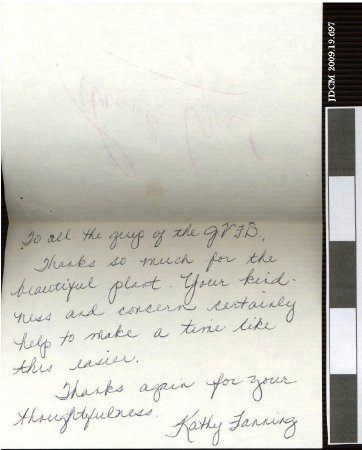 JDCM 2009.19.697
To all the guys of the JVFD,
Thanks so much for the
beautiful plant. Your kind-
ness and concern certainly
help to make a time like
this easier.
Thanks again for your
thoughtfulness.
Kathy Fanning